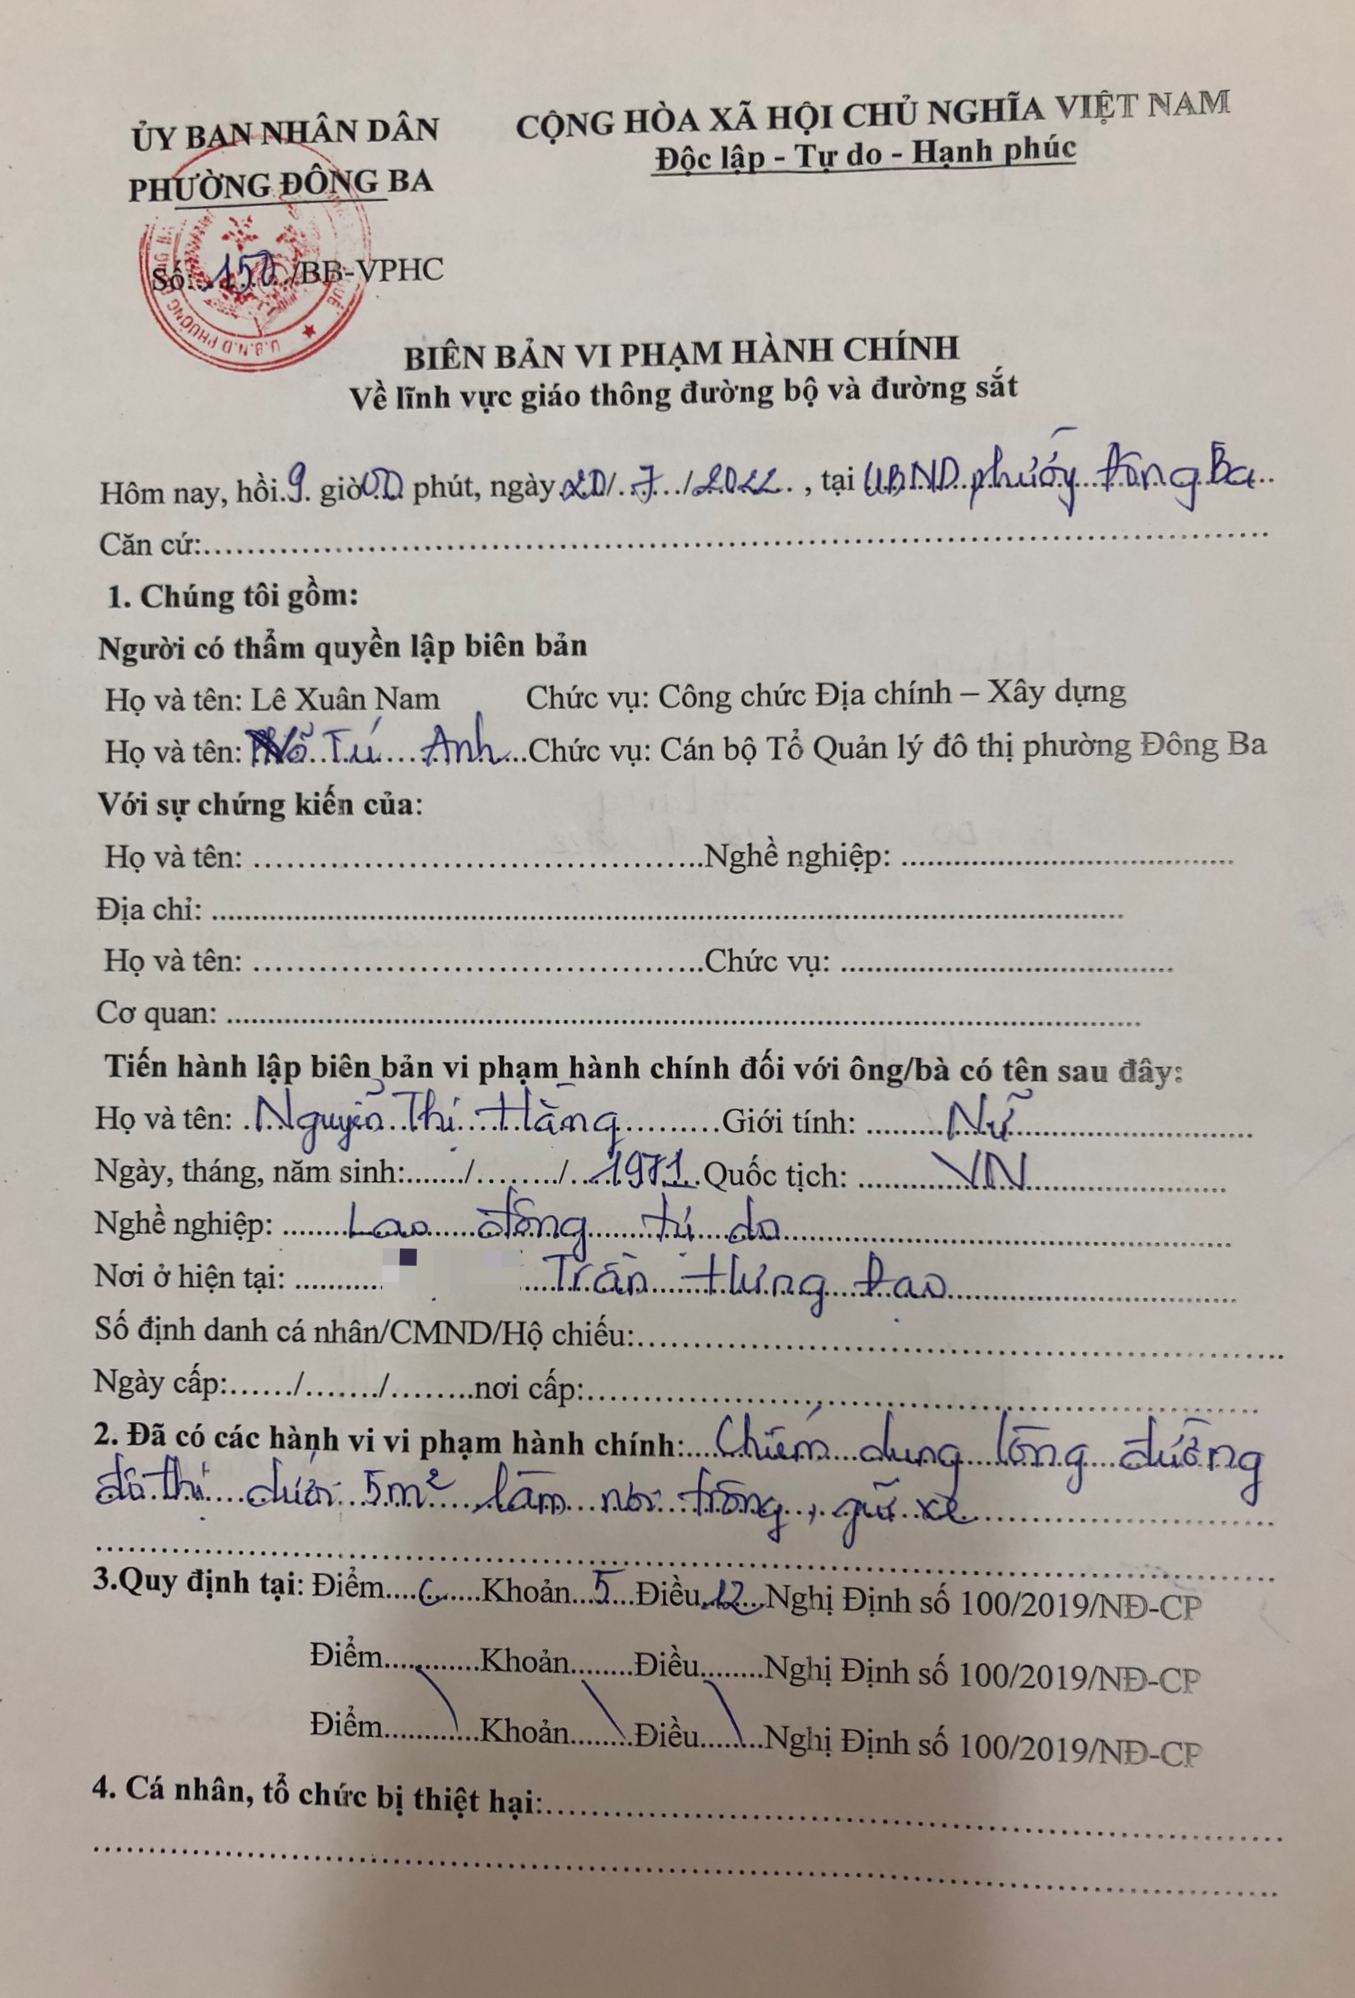 ỦY BAN NHÂN DÂN
PHƯỜNG ĐÔNG BA
CỘNG HÒA XÃ HỘI CHỦ NGHĨA VIỆT NAM
Độc lập - Tự do - Hạnh phúc
Số:..150../BB-VPHC
U.B.N.D PHƯỜNG ĐÔNG BA
BIÊN BẢN VI PHẠM HÀNH CHÍNH
Về lĩnh vực giáo thông đường bộ và đường sắt
Hôm nay, hồi.9. giờ00 phút, ngày 20/.7../2022. , tại UBND phường Đông Ba..
Căn cứ:..........
1. Chúng tôi gồm:
Người có thẩm quyền lập biên bản
Họ và tên: Lê Xuân Nam Chức vụ: Công chức Địa chính – Xây dựng
Họ và tên: Võ Tú Anh...Chức vụ: Cán bộ Tổ Quản lý đô thị phường Đông Ba
Với sự chứng kiến của:
Họ và tên: ..........Nghề nghiệp: ..........
Địa chỉ: ..........
Họ và tên: ..........Chức vụ: ..........
Cơ quan: ..........
Tiến hành lập biên bản vi phạm hành chính đối với ông/bà có tên sau đây:
Họ và tên: .Nguyễn Thị Hằng..........Giới tính: .....Nữ.....
Ngày, tháng, năm sinh:....../......../...1971.Quốc tịch: .....VN.....
Nghề nghiệp: .....Lao động tự do.....
Nơi ở hiện tại: .....Trần Hưng Đạo.....
Số định danh cá nhân/CMND/Hộ chiếu:..........
Ngày cấp:....../......./........nơi cấp:..........
2. Đã có các hành vi vi phạm hành chính:....Chiếm dụng lòng đường
đô thị dưới 5m² làm nơi trông, giữ xe.....
..........
3.Quy định tại: Điểm....c.....Khoản...5...Điều..12...Nghị Định số 100/2019/NĐ-CP
Điểm............Khoản........Điều........Nghị Định số 100/2019/NĐ-CP
Điểm............Khoản........Điều........Nghị Định số 100/2019/NĐ-CP
4. Cá nhân, tổ chức bị thiệt hại:..........
..........